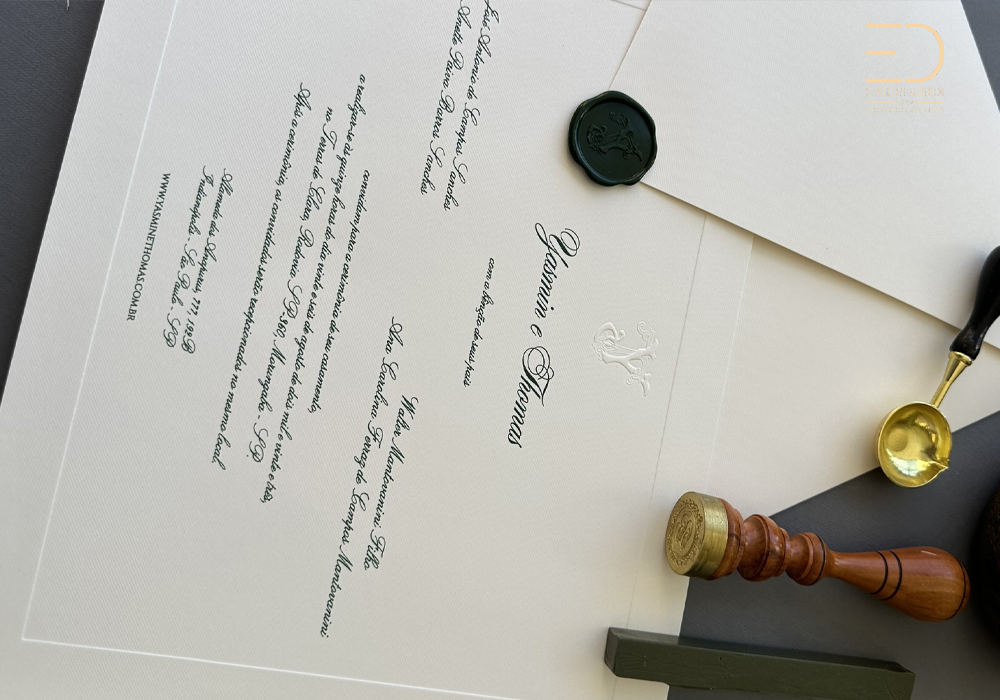 Yasmin e Thomas
com a bênção de seus pais
José Antonio de Campos Sanches
Anette Paiva Barros Sanches
Walter Mantovanini Filho
Ana Carolina Ferraz de Campos Mantovanini
convidam para a cerimônia de seu casamento,
a realizar-se às quinze horas do dia vinte e seis de agosto de dois mil e vinte e três,
no Terras de Clara, Rodovia SP-360, Morungaba - SP.
Após a cerimônia, os convidados serão recepcionados no mesmo local
Alameda dos Anapurus, 777,
Indianópolis - São Paulo - SP
WWW.YASMINETHOMAS.COM.BR